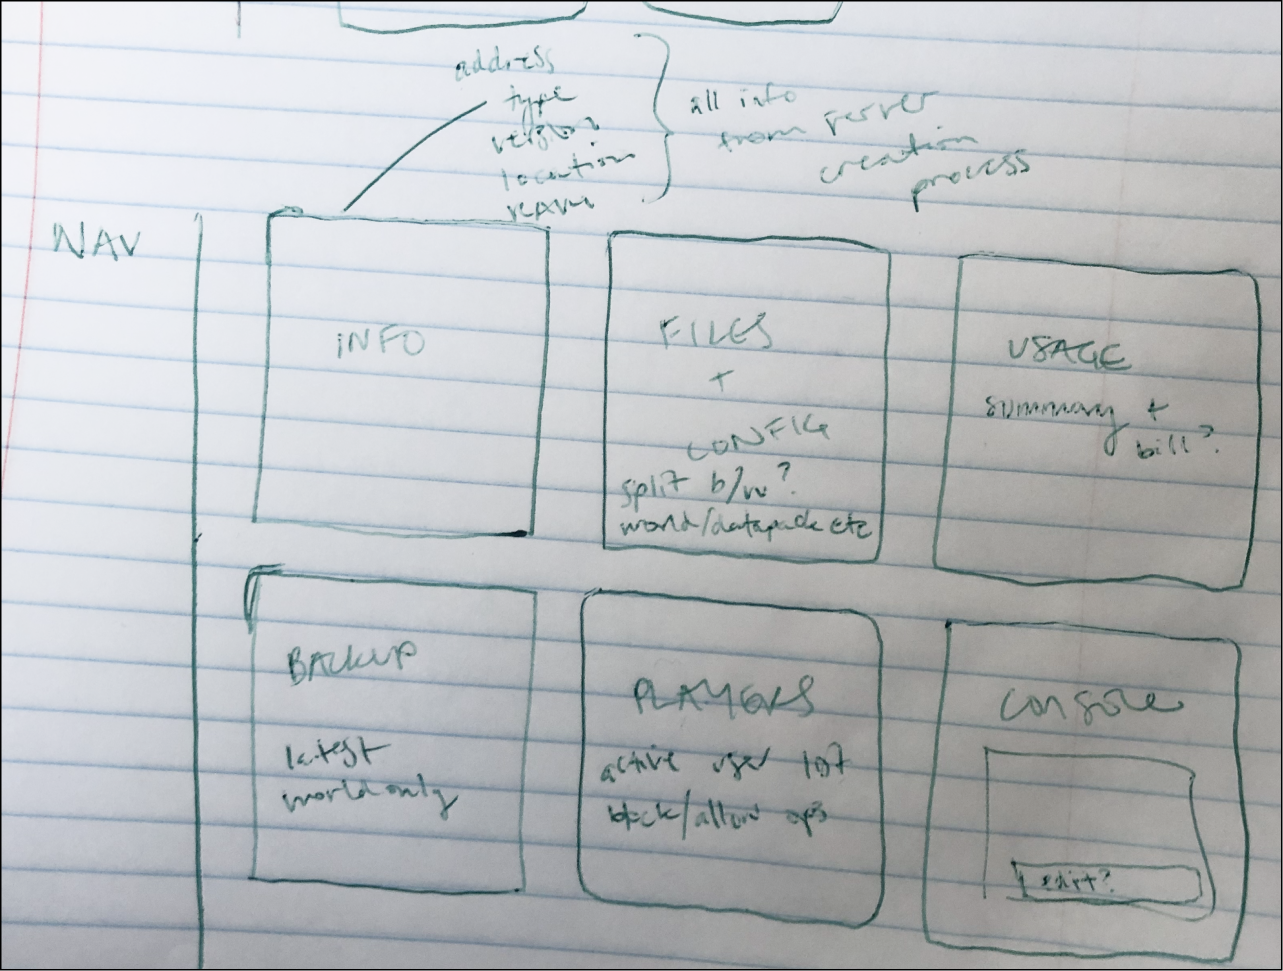 address
type
version
location
name
all info
from server
creation
process
NAV
INFO
FILES
+
CONFIG
split b/w?
world/datapack etc
USAGE
summary +
bill?
BACKUP
latest
world only
PLAYERS
active user list
block/allow ops
console
edit?